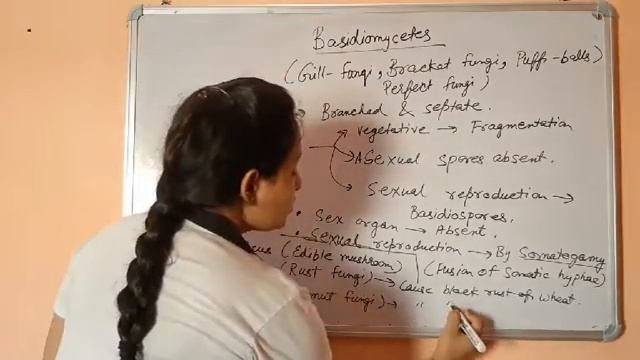 Basidiomycetes
(Gill-fungi, Bracket fungi, Puff-balls)
Perfect fungi)
Branched & septate.
vegetative → Fragmentation
ASexual spores absent.
Sexual reproduction →
Basidiospores.
• Sex organ → Absent.
• Sexual reproduction → By Somatogamy
(Edible mushroom) (Fusion of Somatic hyphae)
(Rust fungi) → Cause black rust of wheat.
fungi) → " "